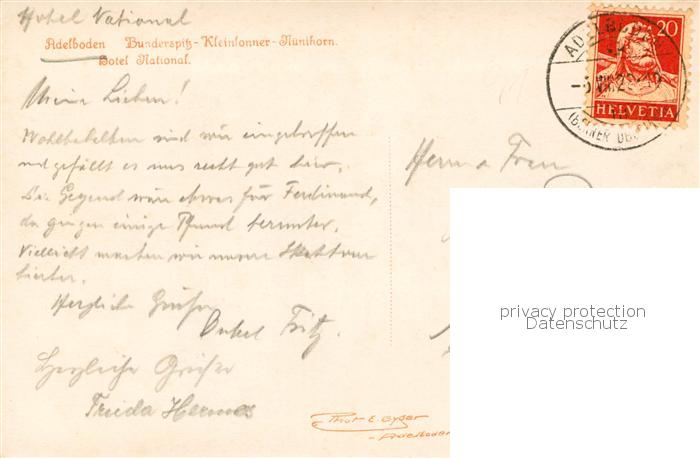 Hotel National
Adelboden Bunderspitz-Kleinlonner-Nünihorn.
Hotel National.
Meine Lieben!
Wohlbehalten sind wir eingetroffen
und gefällt es uns recht gut hier.
Die Gegend wäre etwas für Ferdinand,
da gingen einige Pfund herunter.
Vielleicht machen wir unsere
hierher.
Herzliche Grüße
Onkel Fritz.
Herzliche Grüße
Frieda Hermes
Phot. E. Gyger
Adelboden
20
HELVETIA
ADELBODEN
(BERNER OB
Herrn u Frau
privacy protection
Datenschutz